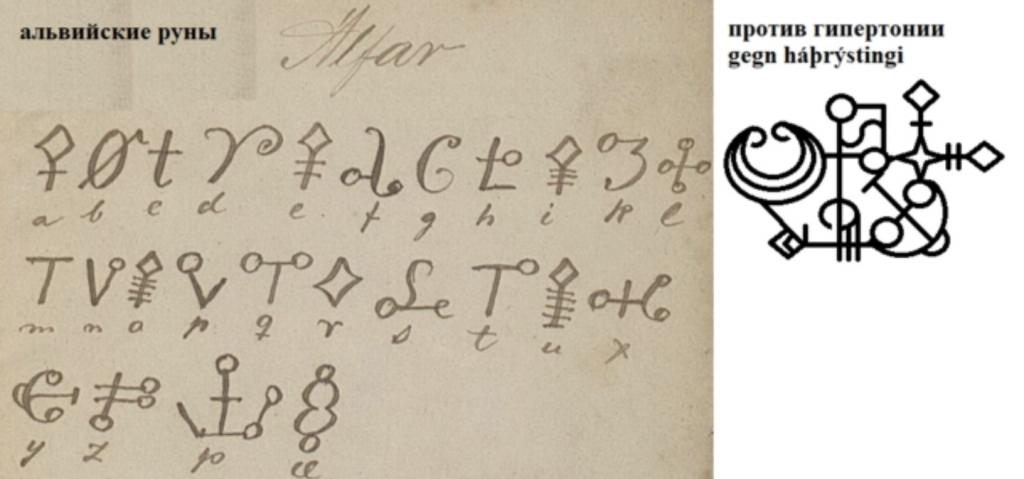 альвийские руны
Alfar
a b c d e f g h i k l
m n o p q r s t u x
y z þ æ
против гипертонии
gegn háþrýstingi